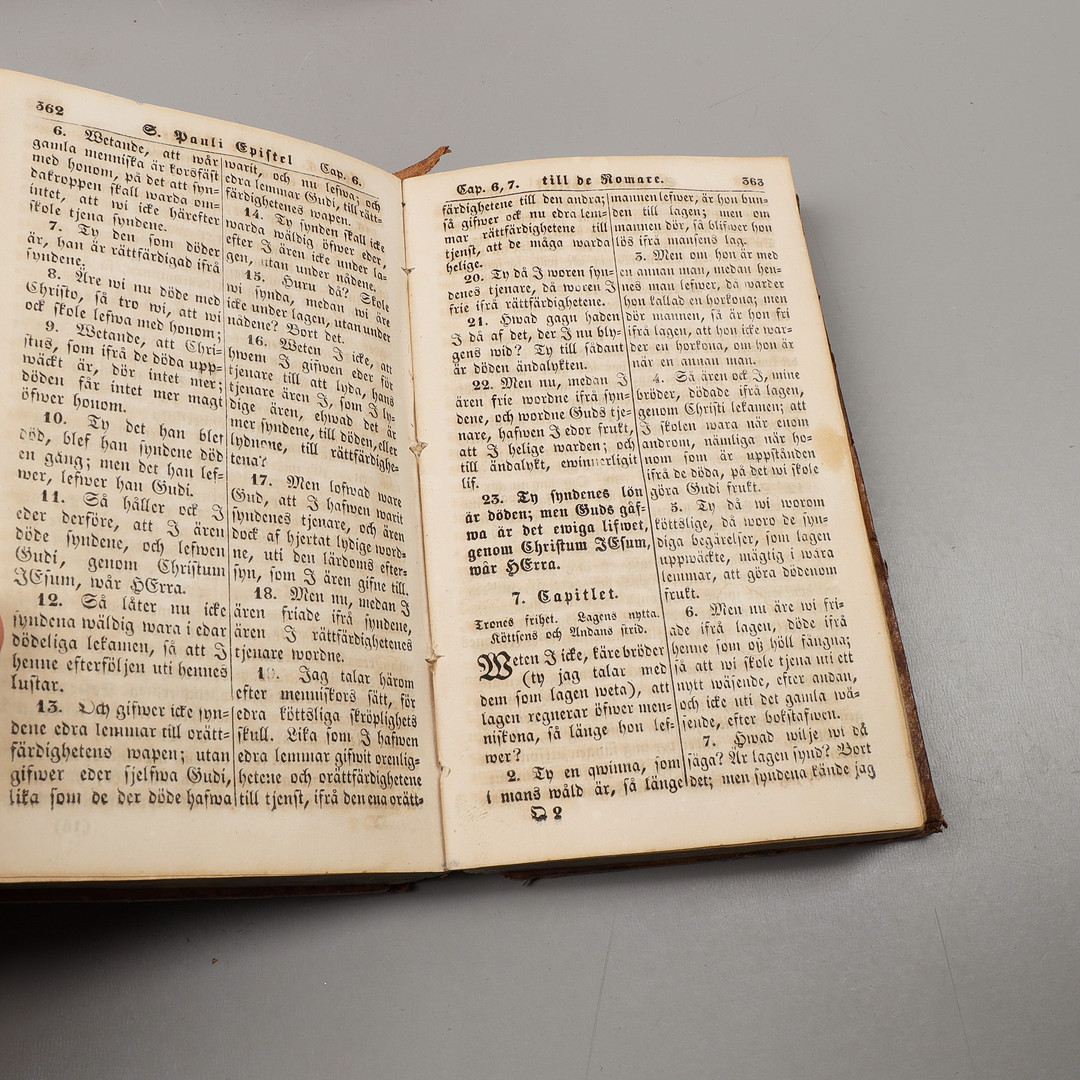 362
S. Pauli Epistel
Cap. 6.
6. Wetande, att wår
gamla menniska är korsfäst
med honom, på det att syn-
dakroppen skall warda om-
intet, att wi icke härefter
skole tjena syndene.
7. Ty den som döder
är, han är rättfärdigad ifrå
syndene.
8. Äre wi nu döde med
Christo, så tro wi, att wi
ock skole lefwa med honom;
9. Wetande, att Chri-
stus, som ifrå de döda upp-
wäckt är, dör intet mer;
döden får intet mer magt
öfwer honom.
10. Ty det han blef
död, blef han syndene död
en gång; men det han lef-
wer, lefwer han Gudi.
11. Så håller ock I
eder derföre, att I ären
döde syndene, och lefwen
Gudi, genom Christum
JEsum, wår HErra.
12. Så låter nu icke
syndena wäldig wara i edar
dödeliga lekamen, så att I
henne efterföljen uti hennes
lustar.
13. Och gifwer icke syn-
dene edra lemmar till orätt-
färdighetens wapen; utan
gifwer eder sjelfwa Gudi,
lika som de der döde hafwa
warit, och nu lefwa; och
edra lemmar Gudi, till rätt-
färdighetenes wapen.
14. Ty synden skall icke
warda wäldig öfwer eder,
efter I ären icke under la-
gen, utan under nådene.
15. Huru då? Skole
wi synda, medan wi äre
icke under lagen, utan under
nådene? Bort det.
16. Weten I icke, att
hwem I gifwen eder för
tjenare till att lyda, hans
tjenare ären I, som I ly-
dige ären, ehwad det är
mer syndene, till döden, eller
lydnone, till rättfärdighe-
tena?
17. Men lofwad ware
Gud, att I hafwen warit
syndenes tjenare, och ären
dock af hjertat lydige word-
ne, uti den lärdoms efter-
syn, som I ären gifne till.
18. Men nu, medan I
ären friade ifrå syndene,
ären I rättfärdighetenes
tjenare wordne.
19. Jag talar härom
efter menniskors sätt, för
edra köttsliga skröplighets
skull. Lika som I hafwen
edra lemmar gifwit orenlig-
hetene och orättfärdighetene
till tjenst, ifrå den ena orätt-
Cap. 6, 7.
till de Romare.
363
färdighetene till den andra;
så gifwer ock nu edra lem-
mar rättfärdighetene till
tjenst, att de måga warda
helige.
20. Ty då I woren syn-
denes tjenare, då woren I
frie ifrå rättfärdighetene.
21. Hwad gagn haden
I då af det, der I nu bly-
gens wid? Ty till sådant
är döden ändalykten.
22. Men nu, medan I
ären frie wordne ifrå syn-
dene, och wordne Guds tje-
nare, hafwen I edor frukt,
att I helige warden; och
till ändalykt, ewinnerligit
lif.
23. Ty syndenes lön
är döden; men Guds gåf-
wa är det ewiga lifwet,
genom Christum JEsum,
wår HErra.
7. Capitlet.
Trones frihet. Lagens nytta.
Köttsens och Andans strid.
Weten I icke, käre bröder
(ty jag talar med
dem som lagen weta), att
lagen regnerar öfwer men-
niskona, så länge hon lef-
wer?
2. Ty en qwinna, som
i mans wåld är, så länge
mannen lefwer, är hon bun-
den till lagen; men om
mannen dör, så blifwer hon
lös ifrå mansens lag.
3. Men om hon är med
en annan man, medan hen-
nes man lefwer, då warder
hon kallad en horkona; men
dör mannen, så är hon fri
ifrå lagen, att hon icke war-
der en horkona, om hon är
när en annan man.
4. Så ären ock I, mine
bröder, dödade ifrå lagen,
genom Christi lekamen; att
I skolen wara när enom
androm, nämliga när ho-
nom som är uppstånden
ifrå de döda, på det wi skole
göra Gudi frukt.
5. Ty då wi worom
köttslige, då woro de syn-
diga begärelser, som lagen
uppwäckte, mägtig i wåra
lemmar, att göra dödenom
frukt.
6. Men nu äre wi fri-
ade ifrå lagen, döde ifrå
henne som oß höll fångna;
så att wi skole tjena uti ett
nytt wäsende, efter andan,
och icke uti det gamla wä-
sende, efter bokstafwen.
7. Hwad wilje wi då
säga? Är lagen synd? Bort
det; men syndena kände jag
Q 2